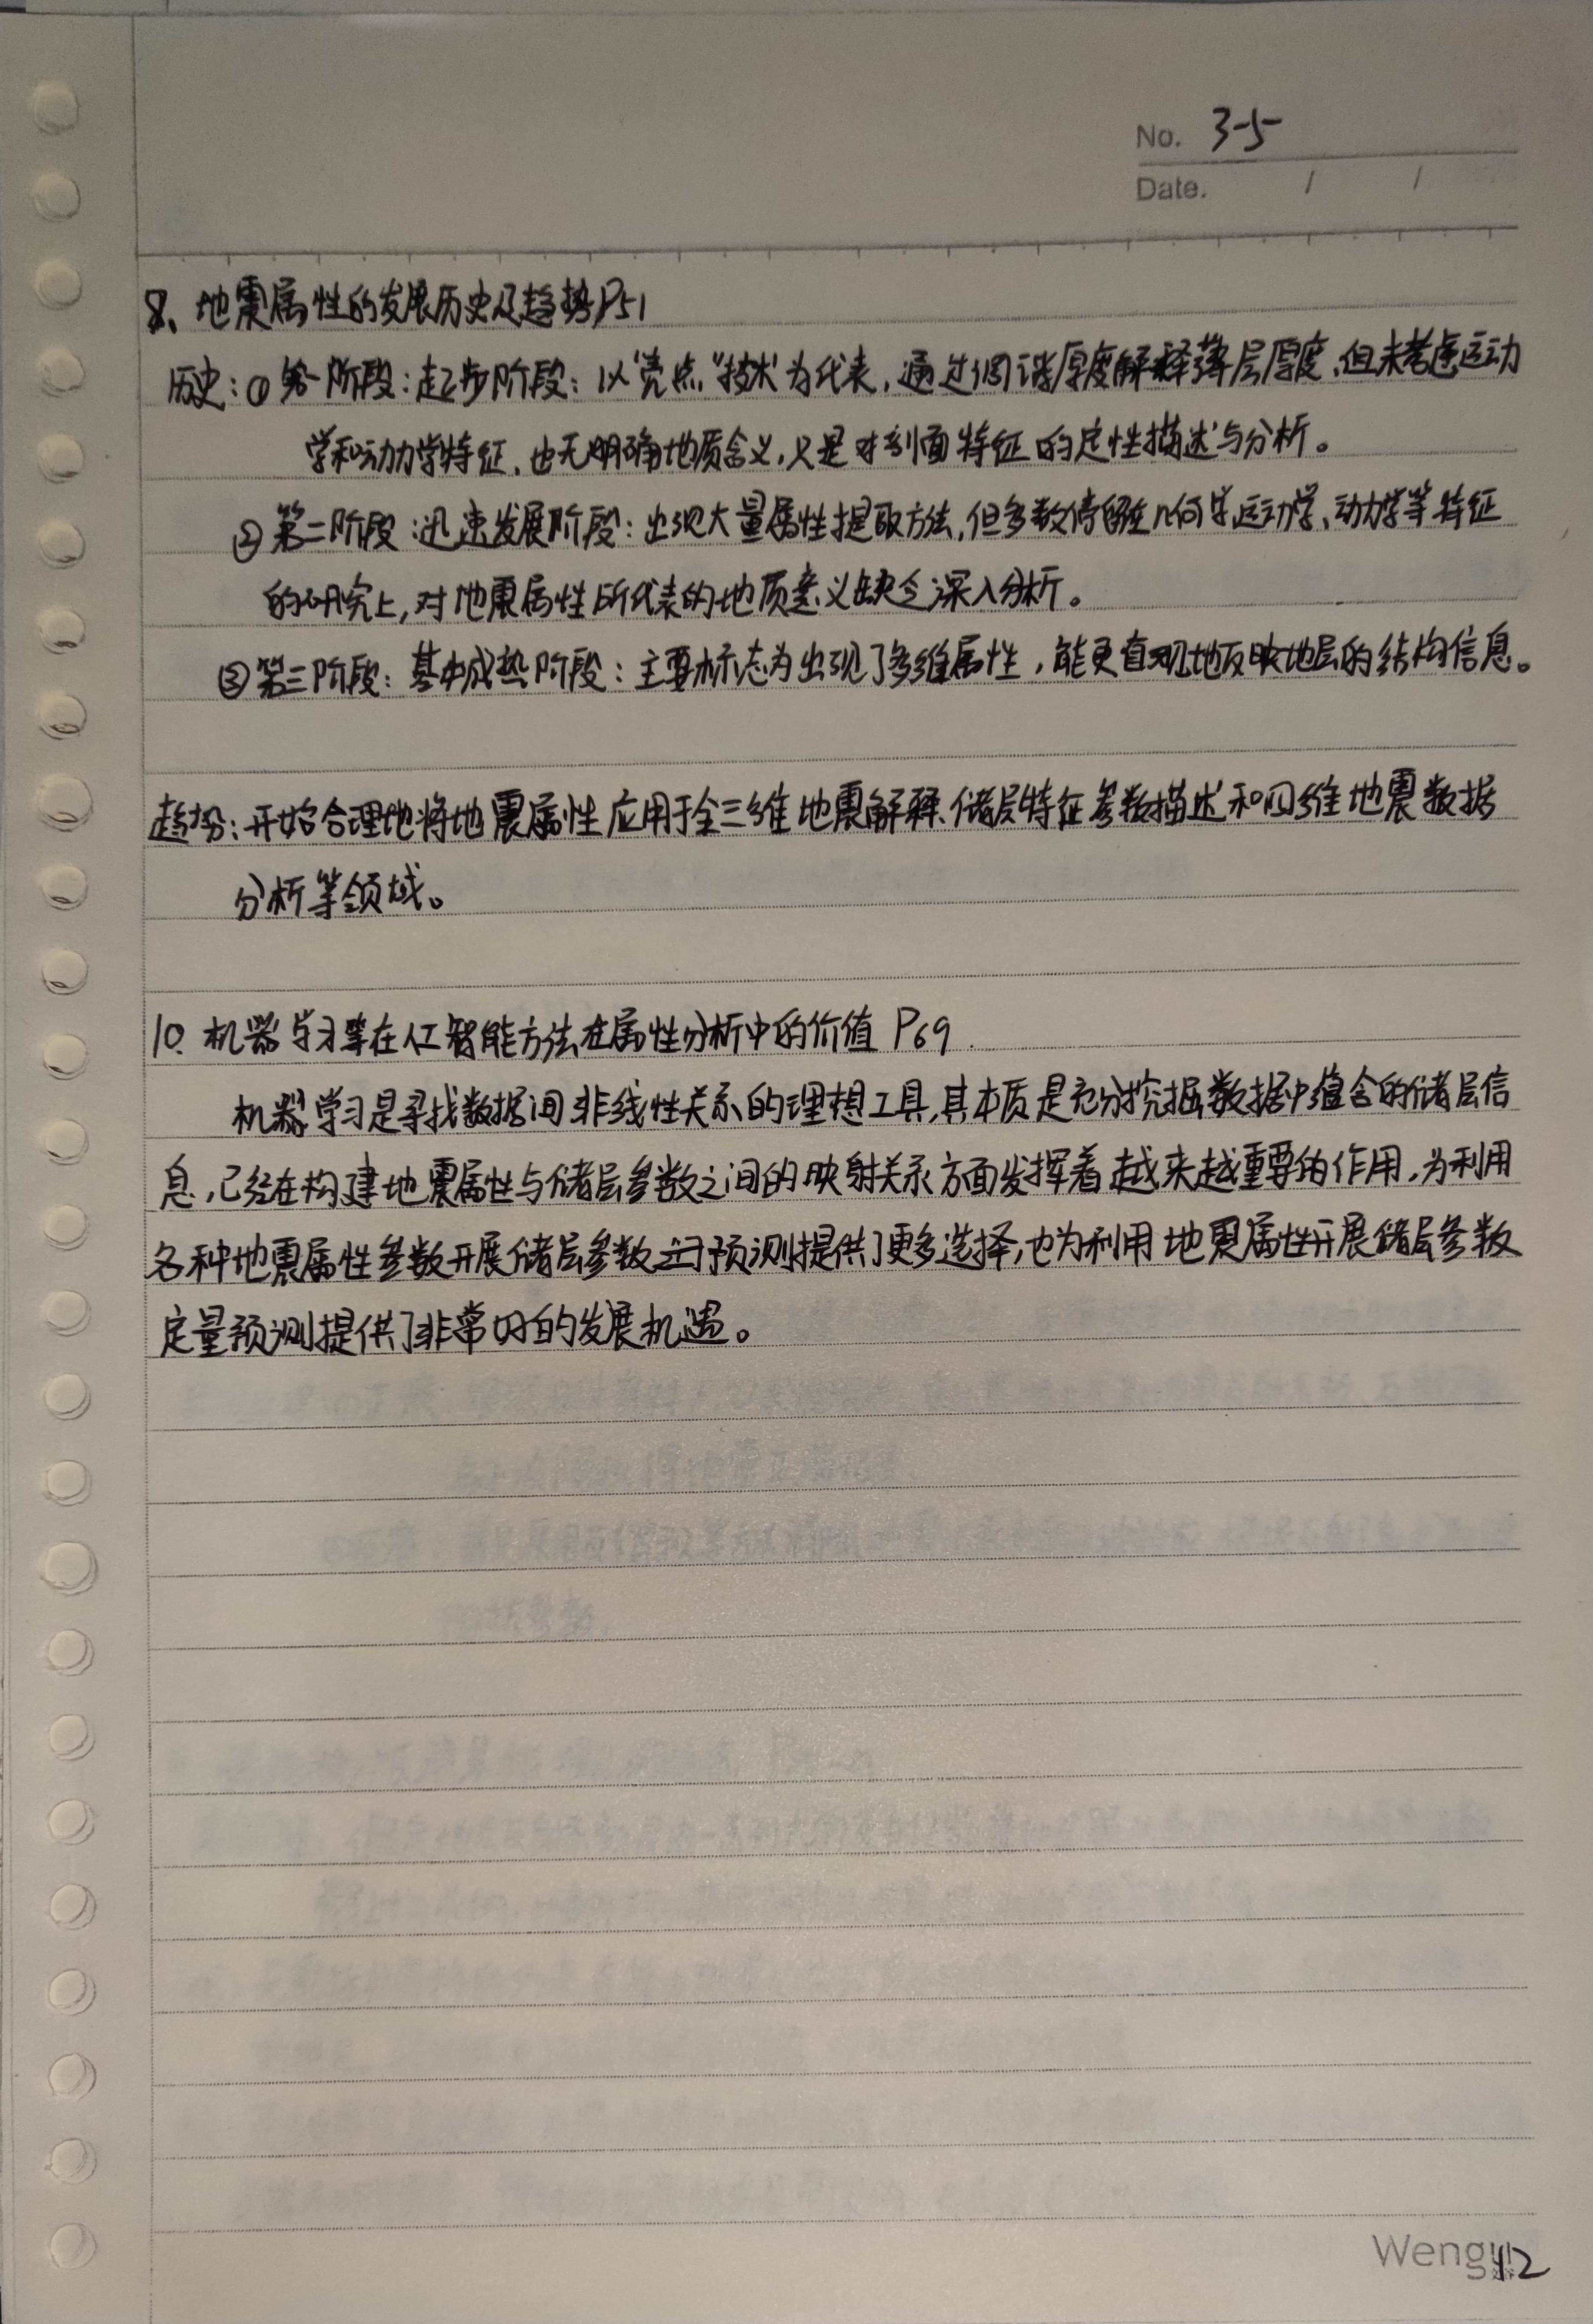 No. 3-5
Date. / /
8、地震属性的发展历史及趋势P51
历史：①第一阶段：起步阶段：以"亮点"技术为代表，通过调谐厚度解释薄层厚度，但未考虑运动
学和动力学特征，也无明确地质含义，只是对剖面特征的定性描述与分析。
②第二阶段：迅速发展阶段：出现大量属性提取方法，但多数停留在几何学、运动学、动力学等特征
的研究上，对地震属性所代表的地质意义缺乏深入分析。
③第三阶段：基本成熟阶段：主要标志为出现了多维属性，能更直观地反映地层的结构信息。
趋势：开始合理地将地震属性应用于全三维地震解释、储层特征参数描述和四维地震数据
分析等领域。
10、机器学习等在人工智能方法在属性分析中的价值 P69
机器学习是寻找数据间非线性关系的理想工具，其本质是充分挖掘数据中蕴含的储层信
息，已经在构建地震属性与储层参数之间的映射关系方面发挥着越来越重要的作用，为利用
各种地震属性参数开展储层参数预测提供了更多选择，也为利用地震属性开展储层参数
定量预测提供了非常好的发展机遇。
12